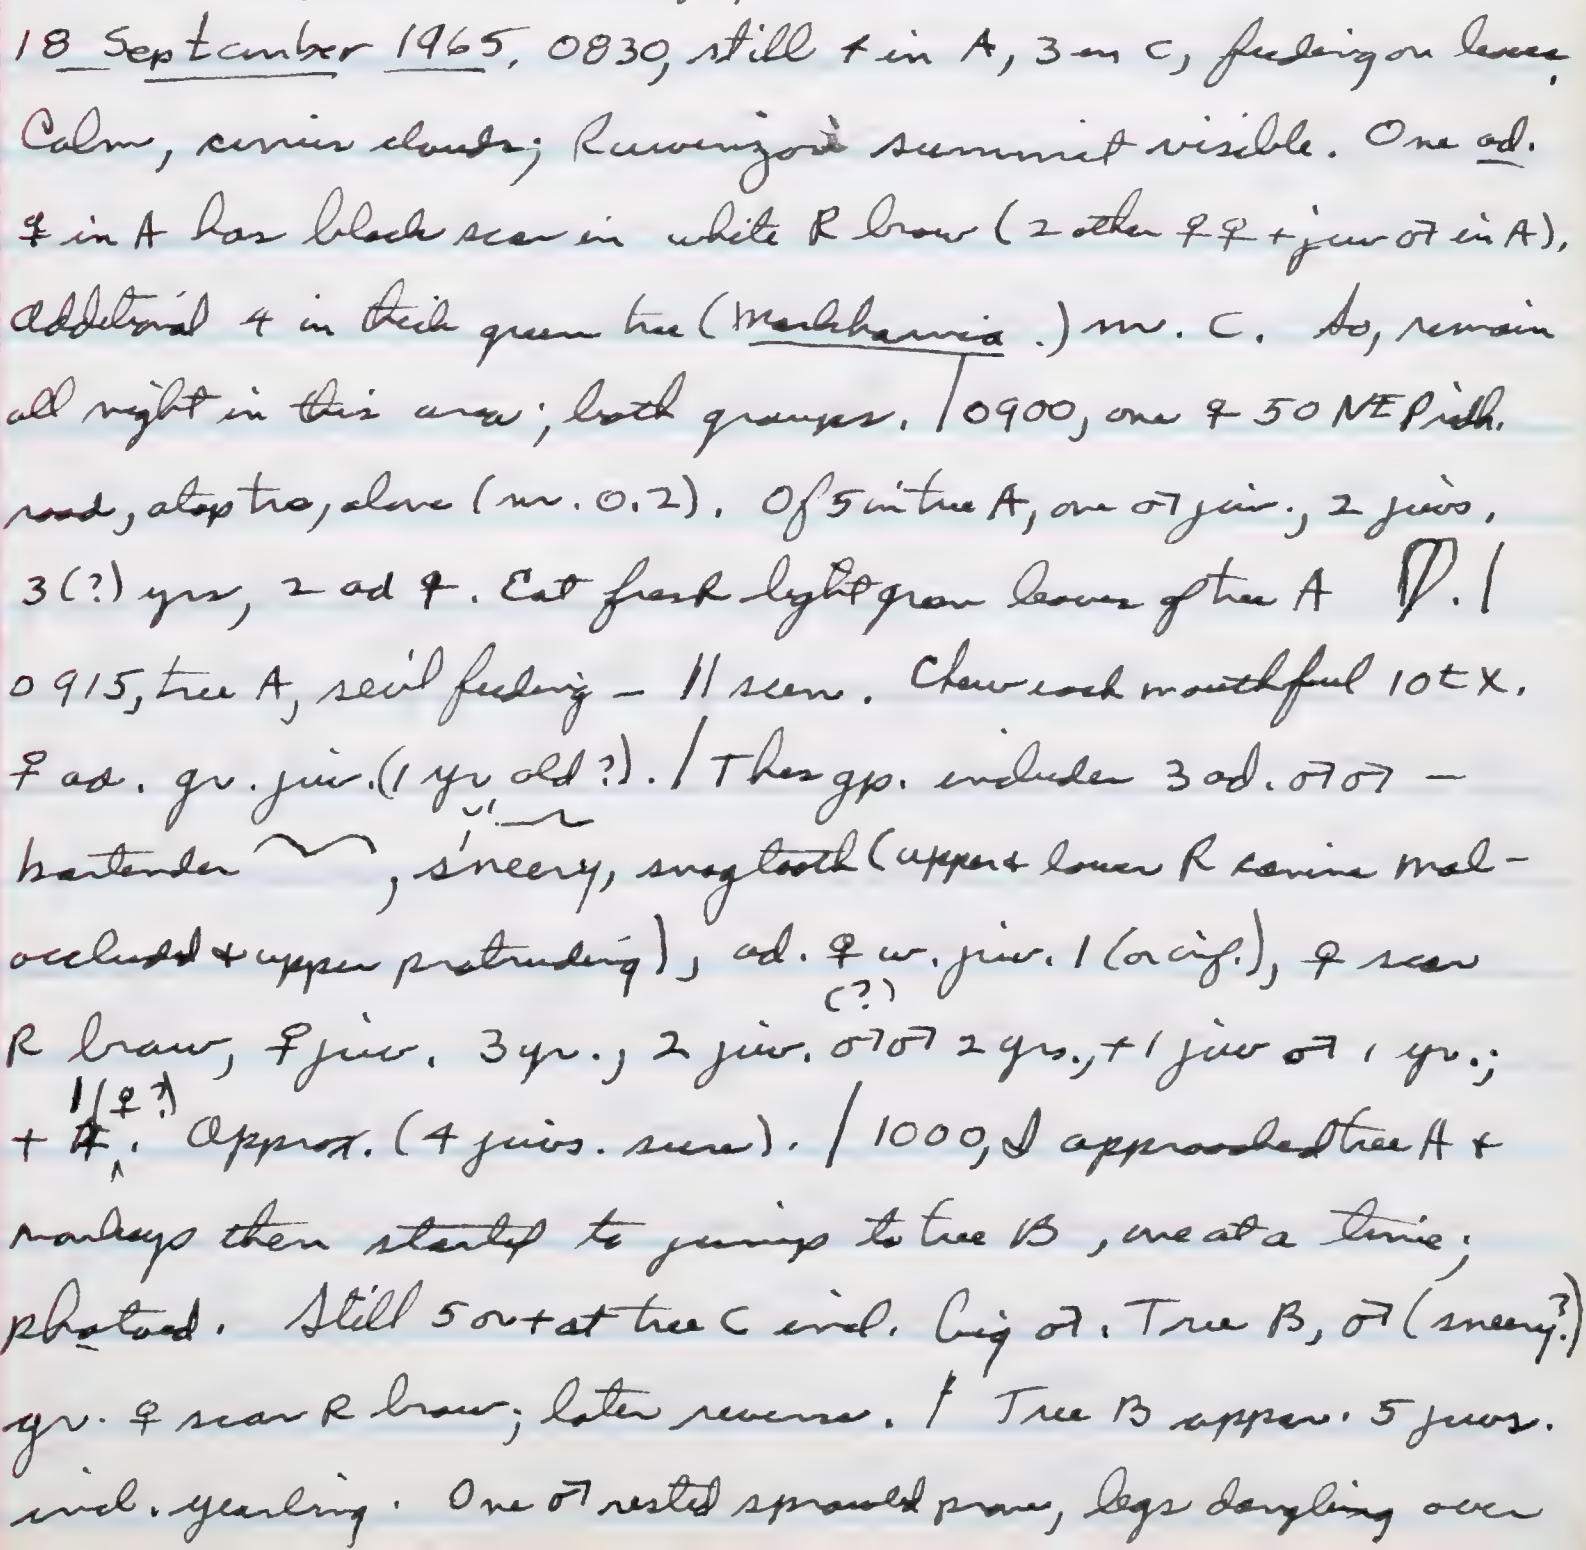 18 September 1965, 0830, still 4 in A, 3 in C, feeding on leaves.
Calm, cirrus clouds; Ruwenzori summit visible. One ad.
♀ in A has black scar in white R brow (2 other ♀♀ + juv ♂ in A).
Additional 4 in thick green tree (Markhamia .) nr. C. So, remain
all night in this area; both groups. / 0900, one ♀ 50 NE Pith.
road, atop tree, alone (nr. 0.2). Of 5 in tree A, one ♂ juv., 2 juvs,
3(?) yrs, 2 ad ♀. Eat fresh light green leaves of tree A . /
0915, tree A, sev'l feeding – 11 seen. Chew each mouthful 10± X.
♀ ad. gr. juv. (1 yr old ?). / This gp. includes 3 ad. ♂♂ –
bartender , sneery, snagtooth (upper & lower R canine mal-
occluded & upper protruding), ad. ♀ w. juv. 1 (or inf.), ♀ scar
(?)
R brow, ♀ juv. 3 yr., 2 juv. ♂♂ 2 yrs., + 1 juv ♂ 1 yr.;
1 (♀?)
+ . Approx. (4 juvs. sure). / 1000, I approached tree A &
monkeys then started to jump to tree B, one at a time;
photoed. Still 5 or + at tree C incl. big ♂. Tree B, ♂ (sneery?)
gr. ♀ scar R brow; later reverse. / Tree B appar. 5 juvs.
incl. yearling. One ♂ rested sprawled prone, legs dangling over